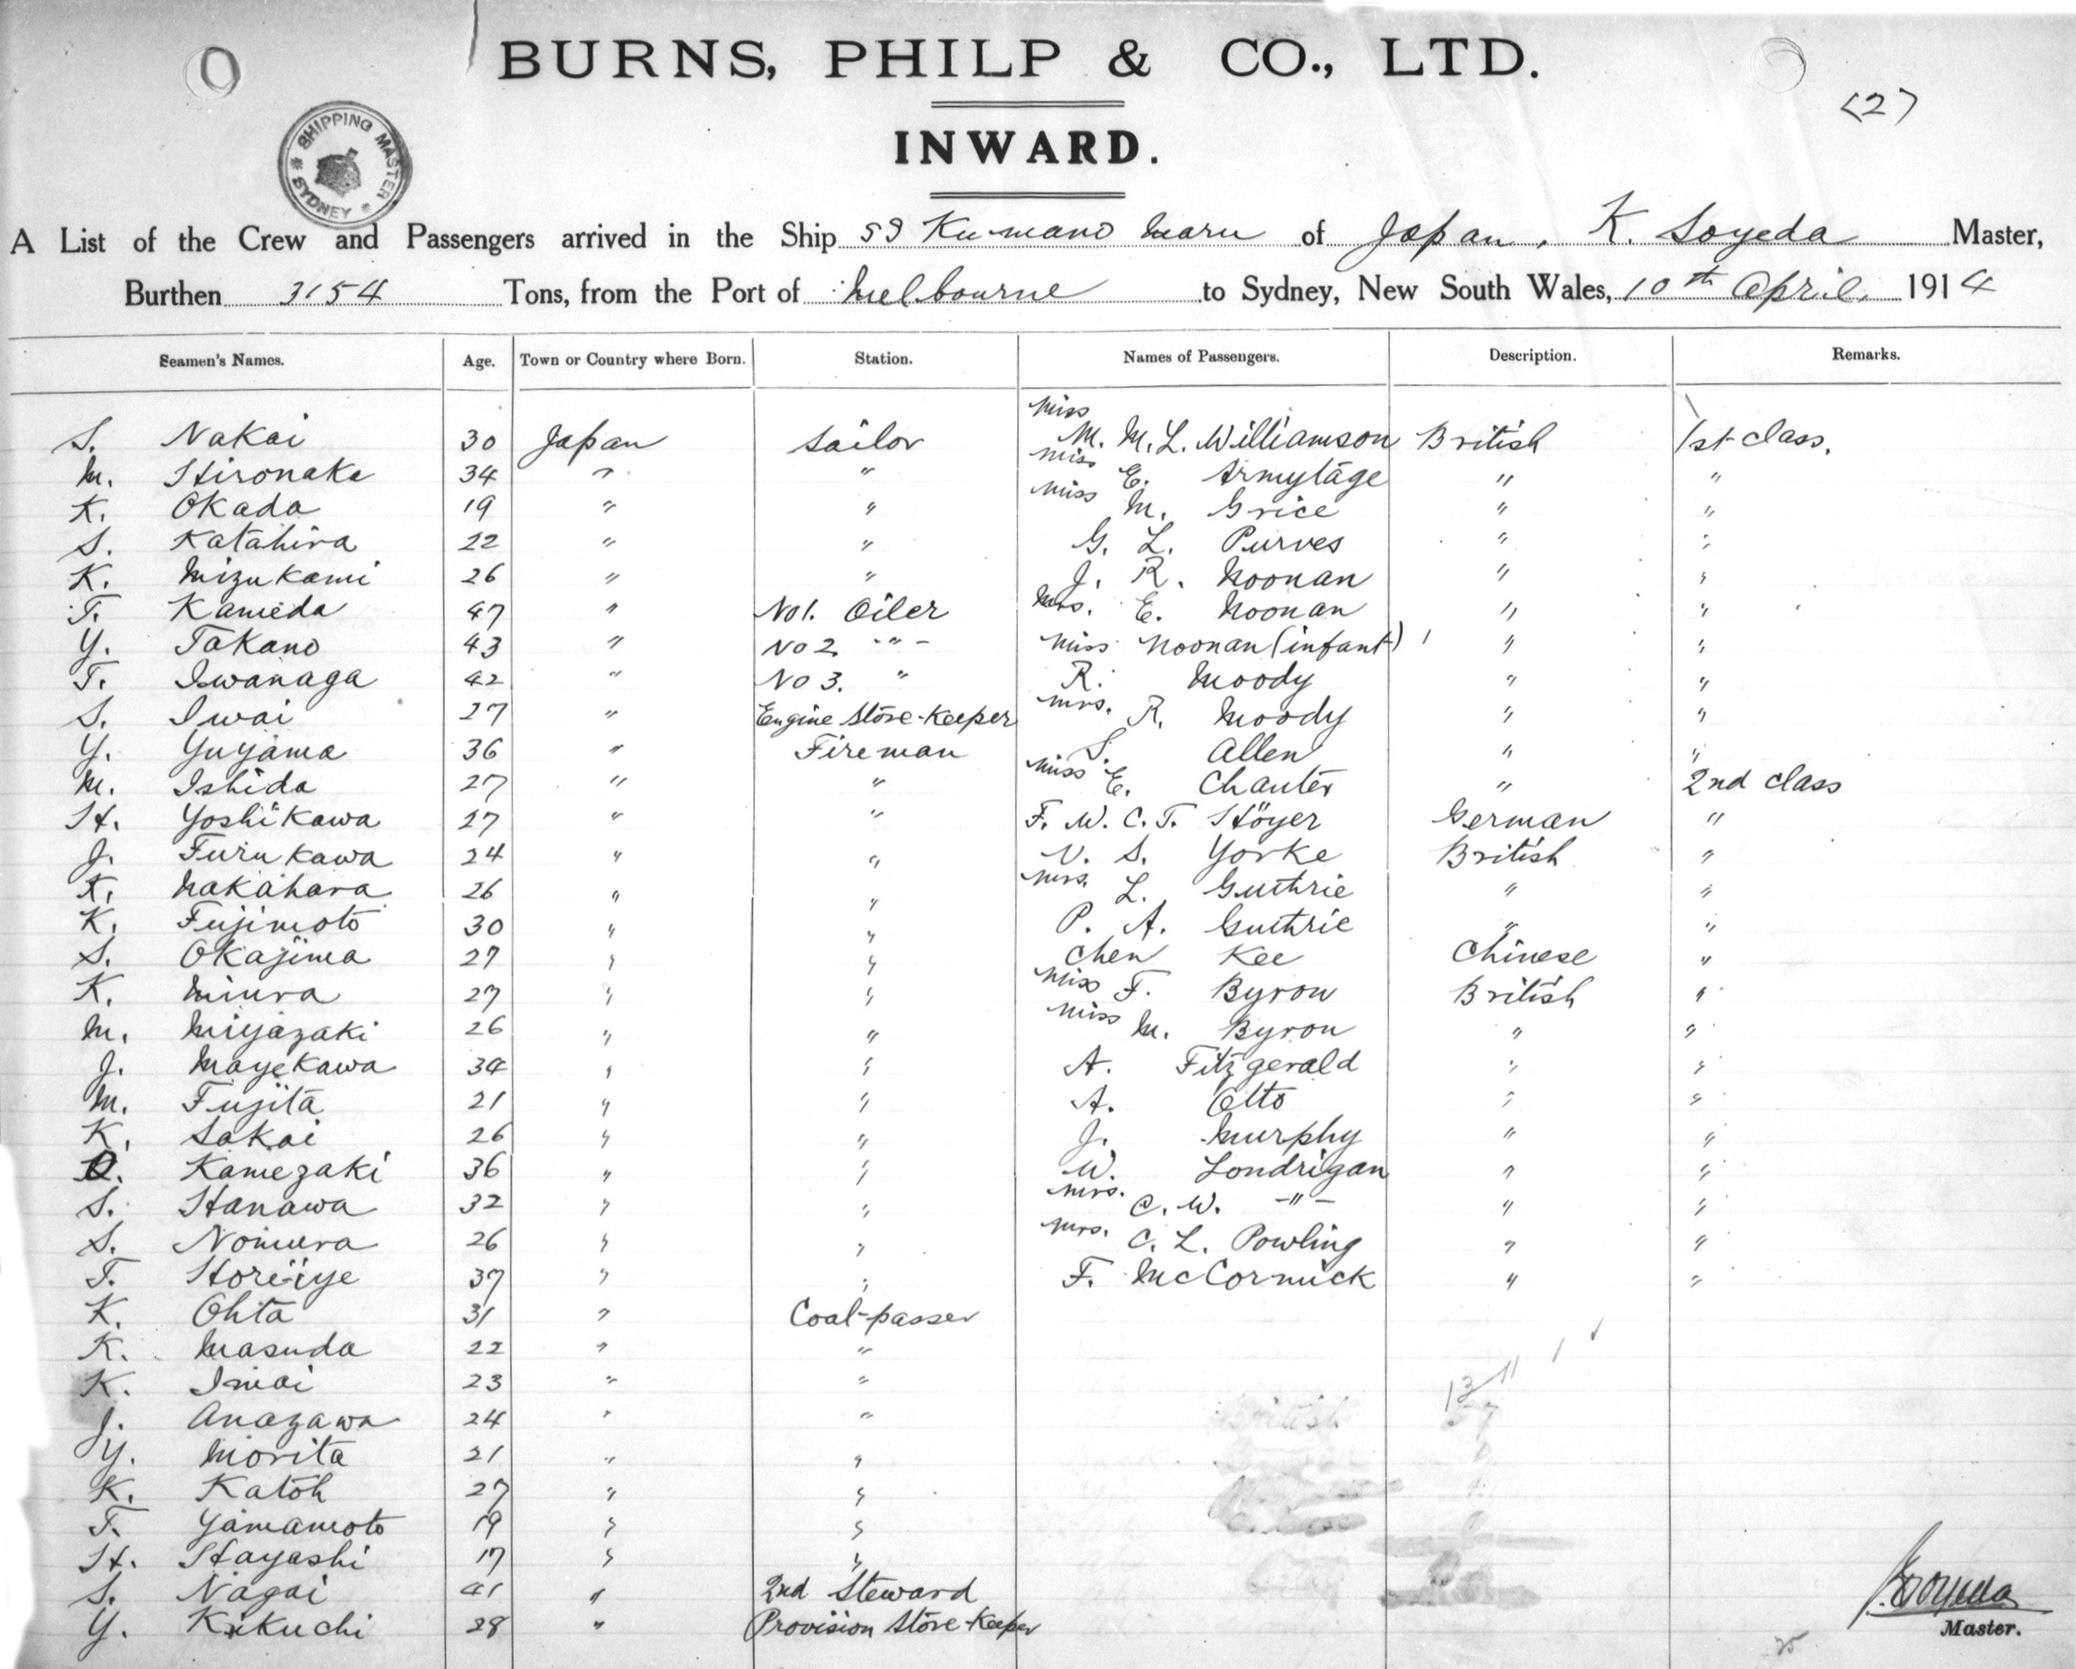 BURNS, PHILP & CO., LTD.
<2>
SHIPPING MASTER
SYDNEY
INWARD.
A List of the Crew and Passengers arrived in the Ship SS Kumano Maru of Japan, K. Soyeda Master,
Burthen 3154 Tons, from the Port of Melbourne to Sydney, New South Wales, 10th April, 1914
Seamen's Names. Age. Town or Country where Born. Station. Names of Passengers. Description. Remarks.
S. Nakai 30 Japan Sailor Miss M. M. L. Williamson British 1st class.
M. Hironaka 34 " " Miss E. Armytage " "
K. Okada 19 " " Miss M. Grice " "
S. Katahira 22 " " G. L. Purves " "
K. Mizukami 26 " " J. R. Noonan " "
T. Kameda 47 " No 1. Oiler Mrs. E. Noonan " "
Y. Takano 43 " No 2 -"- Miss Noonan (infant) " "
T. Iwanaga 42 " No 3. " R. Moody " "
S. Iwai 27 " Engine Store-Keeper Mrs. R. Moody " "
Y. Yuyama 36 " Fireman S. Allen " "
M. Ishida 27 " " Miss E. Chanter " 2nd class
H. Yoshikawa 27 " " F. W. C. T. Stöyer German "
J. Furukawa 24 " " V. S. Yorke British "
K. Nakahara 26 " " Mrs. L. Guthrie " "
K. Fujimoto 30 " " P. A. Guthrie " "
S. Okajima 27 " " Chen Kee Chinese "
K. Miura 27 " " Miss F. Byron British "
M. Miyazaki 26 " " Miss M. Byron " "
J. Mayekawa 34 " " A. Fitzgerald " "
M. Fujita 21 " " A. Otto " "
K. Sakai 26 " " J. Murphy " "
Kamezaki 36 " " W. Londrigan " "
S. Hanawa 32 " " Mrs. C. W. -"- " "
S. Nomura 26 " " Mrs. C. L. Powling " "
T. Horiiye 37 " " F. McCormick " "
K. Ohta 31 " Coal-passer
K. Masuda 22 " "
K. Imai 23 " "
J. Anazawa 24 " "
Y. Morita 21 " "
K. Katoh 27 " "
T. Yamamoto 19 " "
H. Hayashi 17 " "
S. Nagai 41 " 2nd Steward
Y. Kikuchi 28 " Provision Store-Keeper
K. Soyeda
Master.